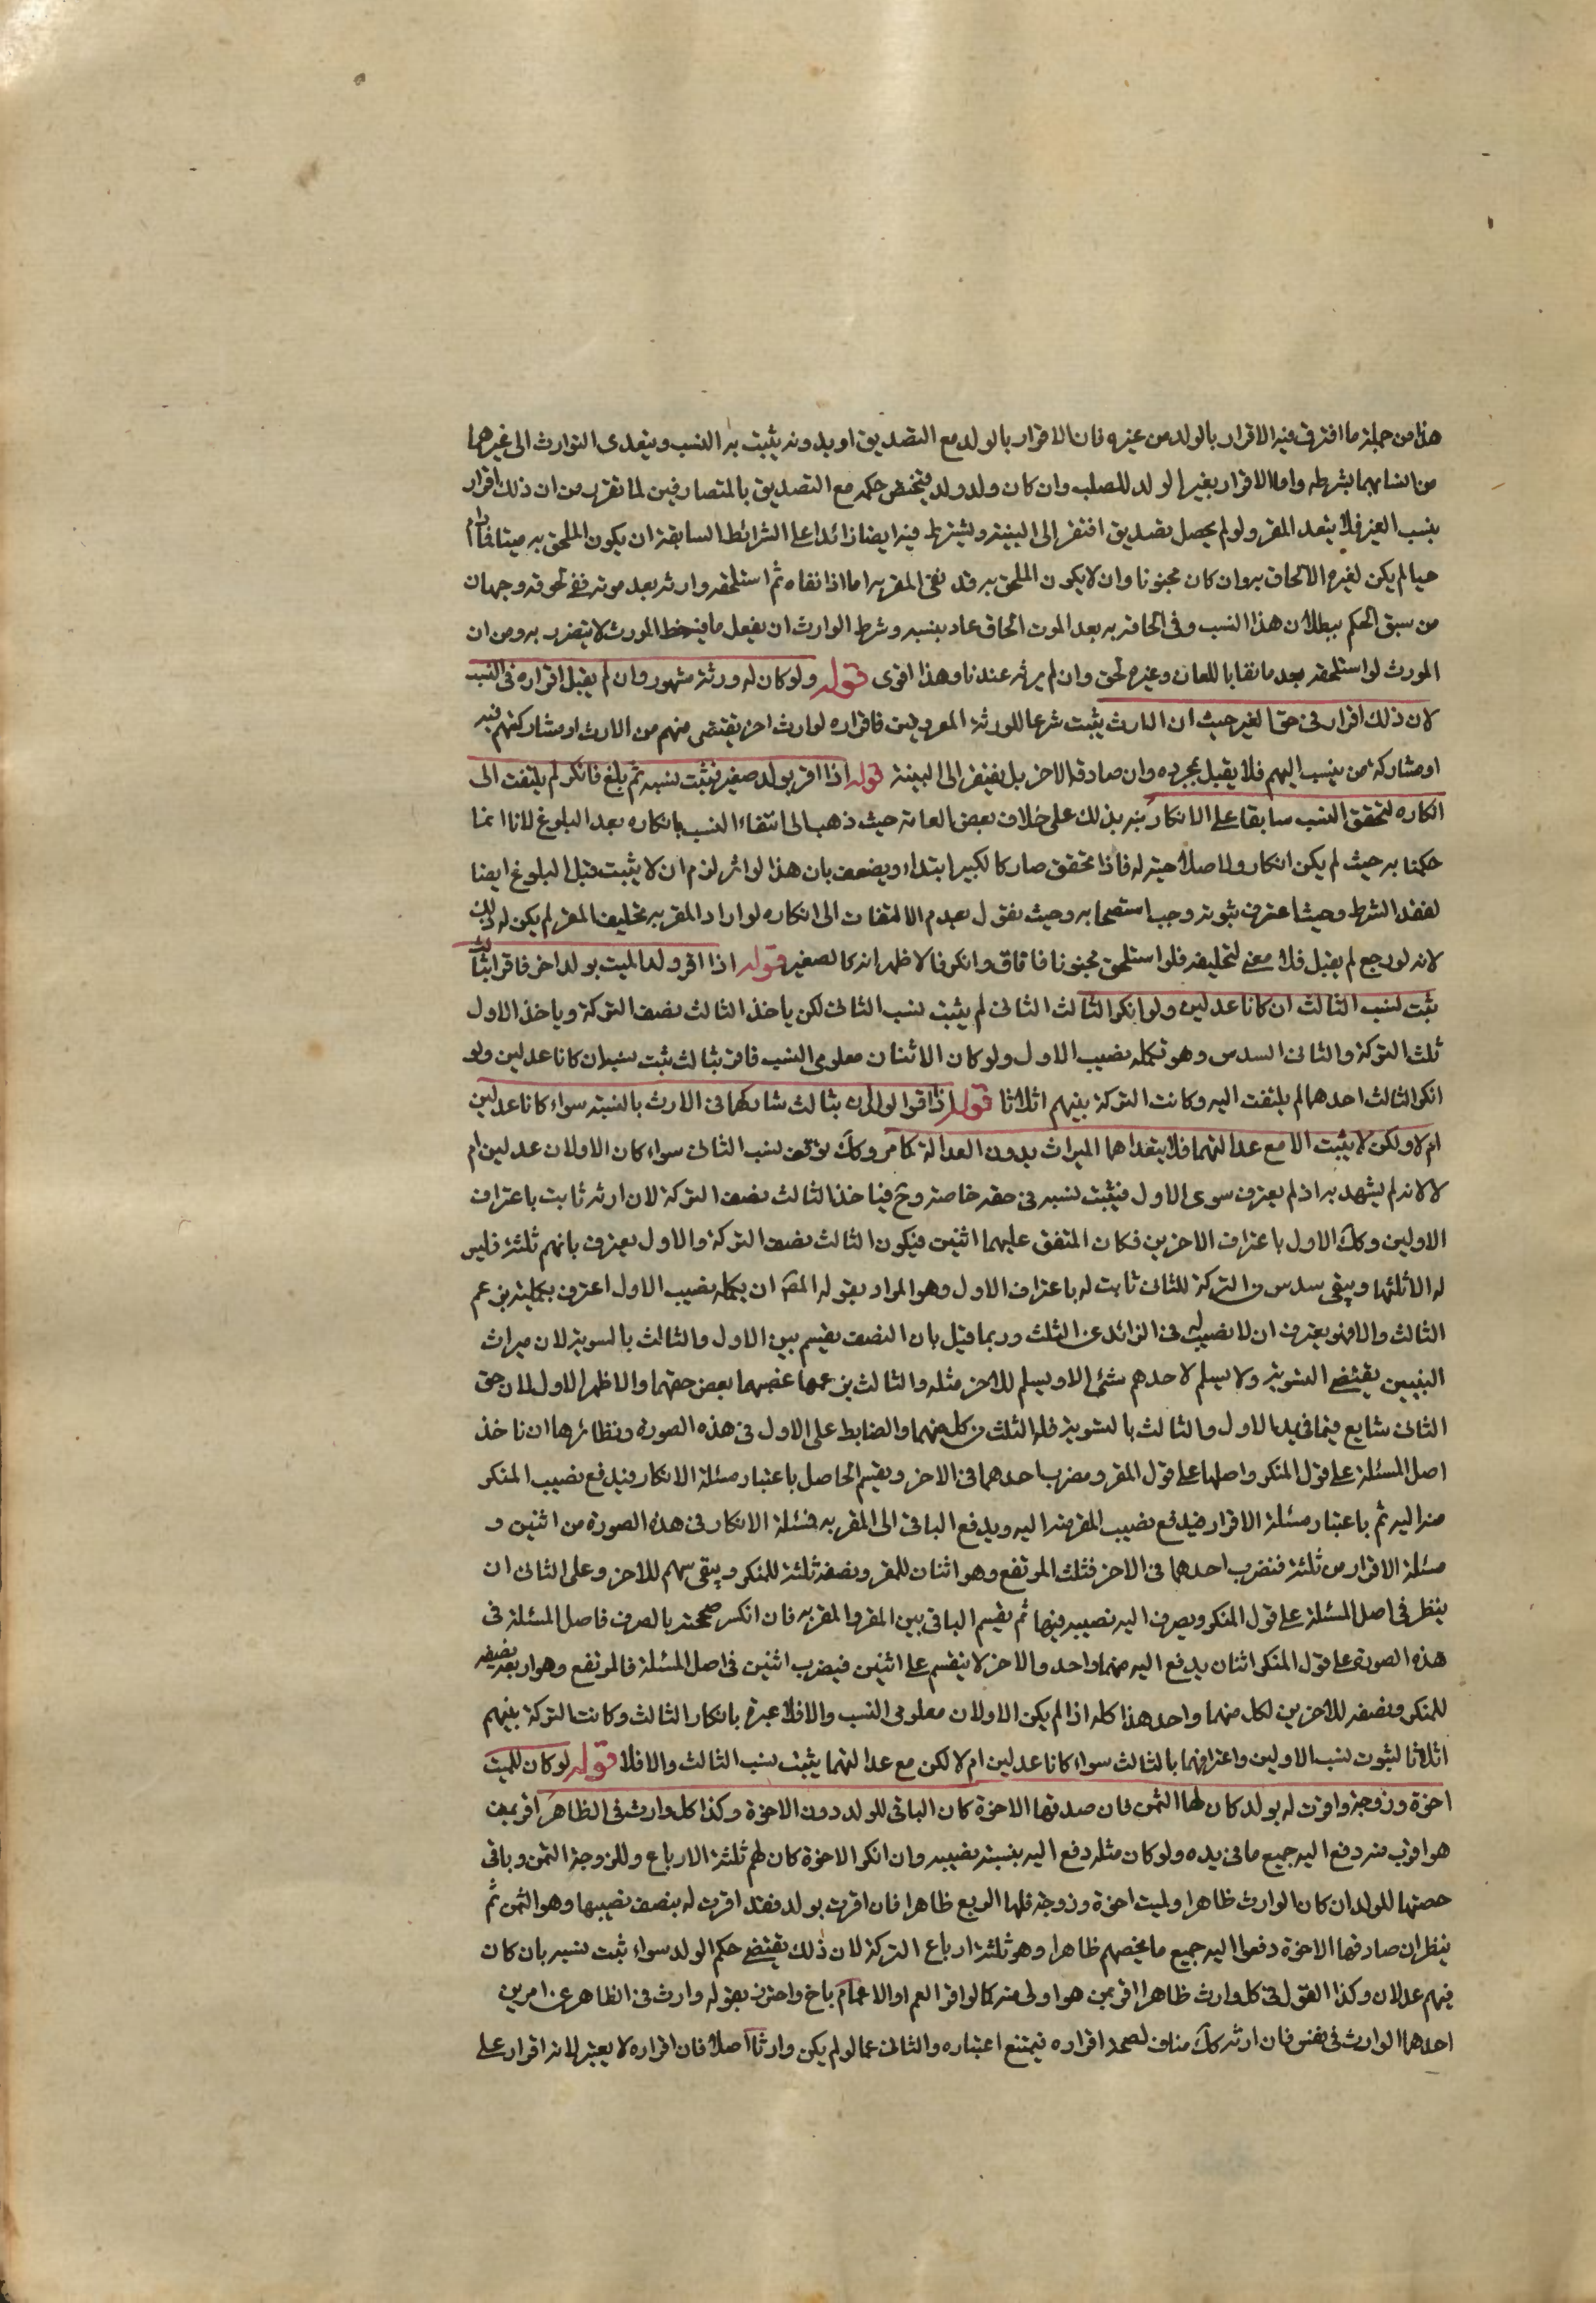 هذا من جملة ما افترق فيه الاقرار بالولد من غيره فان الاقرار بالولد مع التصديق او بدونه يثبت به النسب ويتعدى التوارث الى غيرهما
من انسابهما بشرطه واما الاقرار بغير الولد للصلب وان كان ولد ولد فيختص حكمه مع التصديق بالمتصادقين لما تقرر من ان ذلك اقرار
بنسب الغير فلا يتعد المقر ولو لم يحصل تصديق افتقر الى البينة ويشترط فيه ايضا زائدا على الشرائط السابقة ان يكون الملحق به ميتا فما دام
حيا لم يكن لغيره الالحاق به وان كان مجنونا وان لا يكون الملحق به قد نفى المقر به اما اذا نفاه ثم استلحقه وارثه بعد موته ففي لحوقه وجهان
من سبق الحكم ببطلان هذا النسب وفى الحاقه به بعد الموت الحاق عار بنسبه وشرط الوارث ان يفعل ما فيه حظ المورث لا يتضرر به ومن ان
المورث لو استلحقه بعد ما نفاه باللعان وغيره لحق وان لم يرثه عندنا وهذا اقوى قوله ولو كان له ورثة مشهورون لم يقبل اقراره فى النسب
لان ذلك اقرار فى حق الغير حيث ان الارث يثبت شرعا للورثة المعروفين فاقراره لوارث اخر يقتضى منهم من الارث او مشاركتهم فيه
او مشاركة من ينسب اليهم فلا يقبل بمجرده وان صادقه الاخر بل يفتقر الى البينة قوله اذا اقر بولد صغير فثبت نسبه ثم بلغ فانكر لم يلتفت الى
انكاره لتحقق النسب سابقا على الانكار نبه بذلك على خلاف بعض العامة حيث ذهب الى انتفاء النسب بانكاره بعد البلوغ لانا انما
حكمنا به حيث لم يكن انكار ولا صلاحية له فاذا تحقق صار كالكبير ابتداء ويضعف بان هذا لو اثر لزم ان لا يثبت قبل البلوغ ايضا
لفقد الشرط وحيث اعترف بثبوته وجب استصحابه وحيث نقول بعدم الالتفات الى انكاره لو اراد المقر به تحليف المقر لم يكن له ذلك
لانه لو رجع لم يقبل فلا معنى لتحليفه فلو استلحق مجنونا فافاق وانكر فالاظهر انه كالصغير قوله اذا اقر ولد الميت بولد اخر فاقرا بثالث
ثبت نسب الثالث ان كانا عدلين ولو انكر الثالث الثانى لم يثبت نسب الثانى لكن ياخذ الثالث نصف التركة وياخذ الاول
ثلث التركة والثانى السدس وهو تكملة نصيب الاول ولو كان الاثنان معلومى النسب فاقرا بثالث ثبت نسبه ان كانا عدلين ولو
انكر الثالث احدهما لم يلتفت اليه وكانت التركة بينهم اثلاثا قوله اذا اقر الولدان بثالث شاركهما فى الارث بالنسبة سواء كانا عدلين
ام لا ولكن لا يثبت الا مع عدالتهما فلا يتعداهما الميراث بدون العدالة كما مر وكك توقف نسب الثانى سواء كان الاولان عدلين ام
لا لانه لم يشهد به اذ لم يعترف سوى الاول فيثبت نسبه فى حقه خاصة وح فياخذ الثالث نصف التركة لان ارثه ثابت باعتراف
الاولين وكك الاول باعتراف الاخرين فكان المتفق عليهما اثنين فيكون الثالث نصف التركة والاول يعترف بانهم ثلثة فليس
له الا ثلثها ويبقى سدس من التركة للثانى ثابت له باعتراف الاول وهو المراد بقوله المص ان تكملة نصيب الاول اعترف بكليته بزعم
الثالث والا فهو يعترف ان لا نصيب له فى الزائد عن الثلث وربما قيل بان النصف يقسم بين الاول والثالث بالسوية لان ميراث
البنين يقتضى التسوية ولا يسلم لاحدهم شئ الا ويسلم للاخر مثله والثالث بزعمهما غصبهما بعض حقهما والاظهر الاول لان حق
الثانى شايع فيما فى يد الاول والثالث بالتسوية فله الثلث من كل منهما والضابط على الاول فى هذه الصورة ونظائرها ان تاخذ
اصل المسئلة على قول المنكر واصلها على قول المقر ومضرب احدهما فى الاخر ويقسم الحاصل باعتبار مسئلة الانكار فيدفع نصيب المنكر
منه اليه ثم باعتبار مسئلة الاقرار فيدفع نصيب المقر منه اليه ويدفع الباقى الى المقر به فمسئلة الانكار فى هذه الصورة من اثنين و
مسئلة الاقرار من ثلثة فنضرب احدهما فى الاخر فثلث المرتفع وهو اثنان للمقر ونصفه ثلثة للمنكر ويبقى سهم للاخر وعلى الثانى ان
ينظر فى اصل المسئلة على قول المنكر ويصرف اليه نصيبه فيها ثم يقسم الباقى بين المقر والمقر به فان انكسر صححته بالضرب فاصل المسئلة فى
هذه الصورة على قول المنكر اثنان يدفع اليه منهما واحد والاخر لا ينقسم على اثنين فيضرب اثنين فى اصل المسئلة فالمرتفع وهو اربعة نصفه
للمنكر ونصفه للاخرين لكل منهما واحد هذا كله اذا لم يكن الاولان معلومى النسب والا فلا عبرة بانكار الثالث وكانت التركة بينهم
اثلاثا لثبوت نسب الاولين واعترافهما بالثالث سواء كانا عدلين ام لا لكن مع عدالتهما يثبت نسب الثالث والا فلا قوله لو كان للميت
اخوة وزوجة واقرت له بولد كان لها الثمن فان صدقها الاخوة كان الباقى للولد دون الاخوة وكذا كل وارث فى الظاهر اقر بمن
هو اقرب منه دفع اليه جميع ما فى يده ولو كان مثله دفع اليه بنسبة نصيبه وان انكر الاخوة كان لهم ثلثة الارباع وللزوجة الثمن وباقى
حصتها للولد ان كان الوارث ظاهرا وللميت اخوة وزوجة فلها الربع ظاهرا فان اقرت بولد فقد اقرت له بنصف نصيبها وهو الثمن ثم
ينظر ان صادقها الاخوة دفعوا اليه جميع ما يخصهم ظاهرا وهو ثلثة ارباع التركة لان ذلك يقتضى حكم الولد سواء ثبت نسبه بان كان
فيهم عدلان وكذا القول فى كل وارث ظاهرا اقر بمن هو اولى منه كما لو اقر العم او الاعمام باخ واحترز بقوله وارث فى الظاهر عن امرين
احدهما الوارث فى نفس فان ارثه كك مناف لصحة اقراره فيمتنع اعتباره والثانى عما لو لم يكن وارثا اصلا فان اقراره لا يعتبر لانه اقرار على